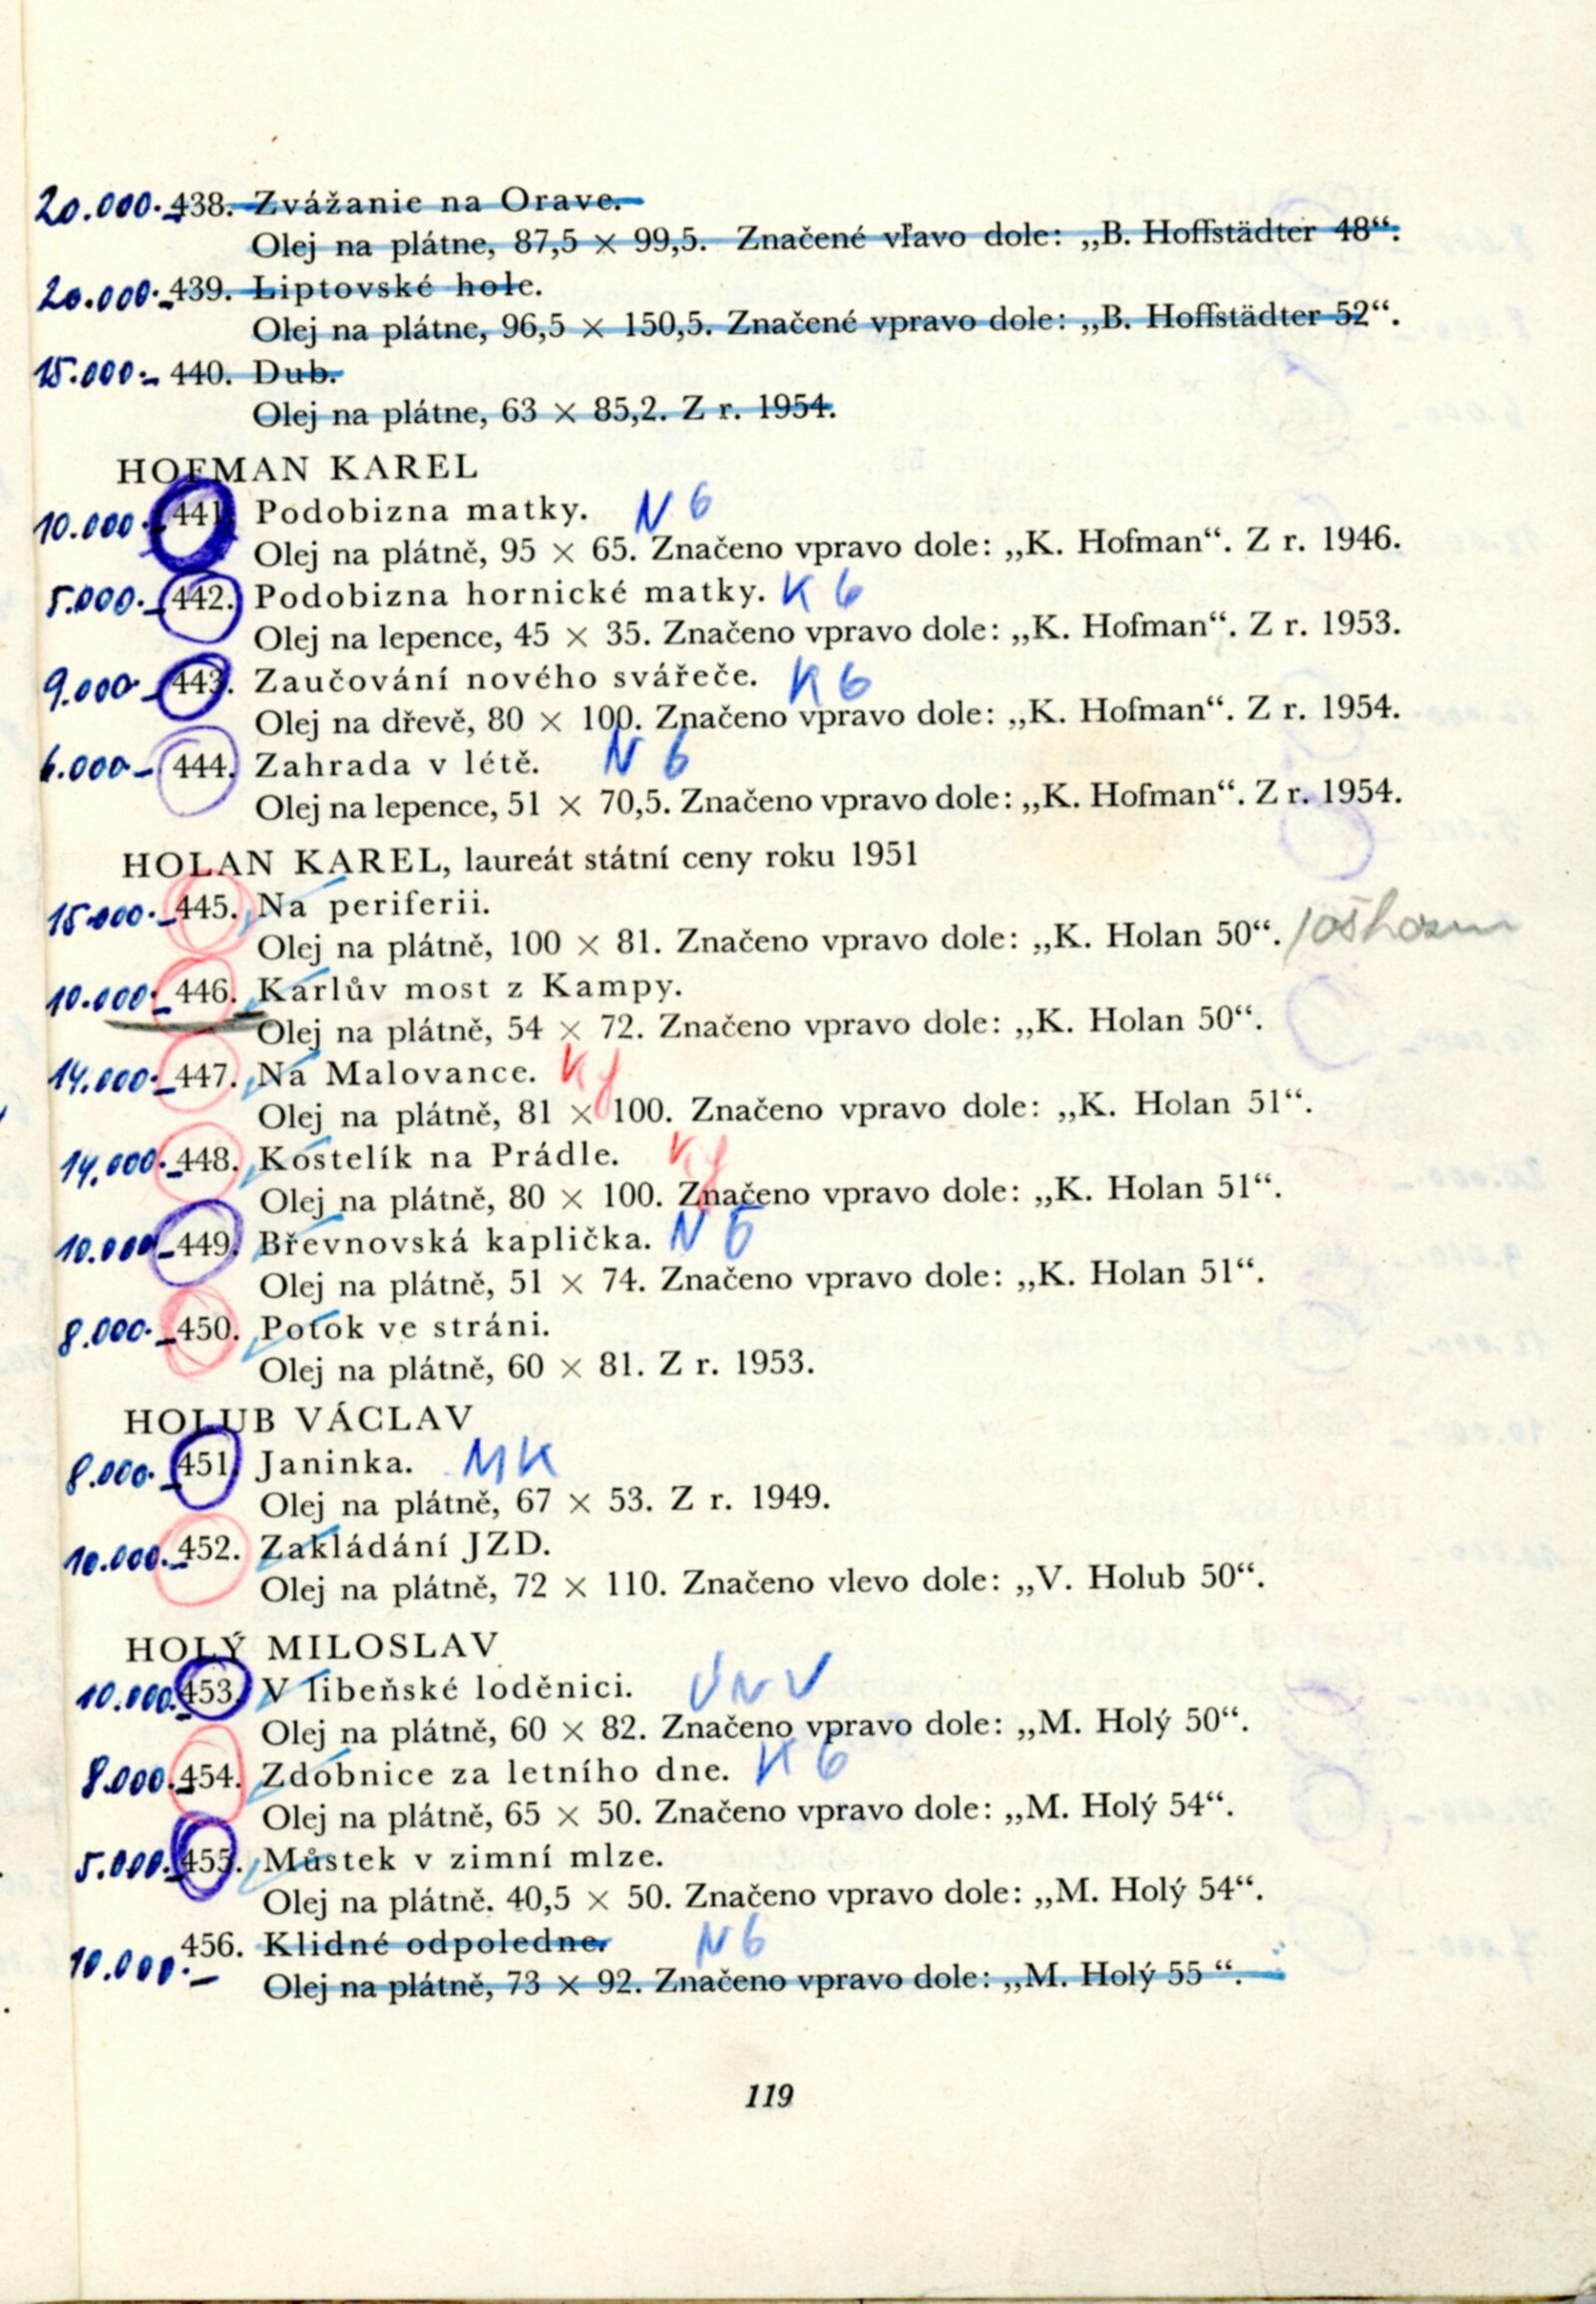 20.000.- 438. Zvážanie na Orave.
Olej na plátne, 87,5 × 99,5. Značené vľavo dole: „B. Hoffstädter 48“.
20.000.- 439. Liptovské hole.
Olej na plátne, 96,5 × 150,5. Značené vpravo dole: „B. Hoffstädter 52“.
15.000.- 440. Dub.
Olej na plátne, 63 × 85,2. Z r. 1954.
HOFMAN KAREL
10.000.- 441. Podobizna matky. N 6
Olej na plátně, 95 × 65. Značeno vpravo dole: „K. Hofman“. Z r. 1946.
5.000.- 442. Podobizna hornické matky. K 6
Olej na lepence, 45 × 35. Značeno vpravo dole: „K. Hofman“. Z r. 1953.
9.000.- 443. Zaučování nového svářeče. K 6
Olej na dřevě, 80 × 100. Značeno vpravo dole: „K. Hofman“. Z r. 1954.
6.000.- 444. Zahrada v létě. N 6
Olej na lepence, 51 × 70,5. Značeno vpravo dole: „K. Hofman“. Z r. 1954.
HOLAN KAREL, laureát státní ceny roku 1951
15.000.- 445. Na periferii.
Olej na plátně, 100 × 81. Značeno vpravo dole: „K. Holan 50“.
10.000.- 446. Karlův most z Kampy.
Olej na plátně, 54 × 72. Značeno vpravo dole: „K. Holan 50“.
14.000.- 447. Na Malovance.
Olej na plátně, 81 × 100. Značeno vpravo dole: „K. Holan 51“.
14.000.- 448. Kostelík na Prádle.
Olej na plátně, 80 × 100. Značeno vpravo dole: „K. Holan 51“.
10.000.- 449. Břevnovská kaplička. N 6
Olej na plátně, 51 × 74. Značeno vpravo dole: „K. Holan 51“.
8.000.- 450. Potok ve stráni.
Olej na plátně, 60 × 81. Z r. 1953.
HOLUB VÁCLAV
8.000.- 451. Janinka. MK
Olej na plátně, 67 × 53. Z r. 1949.
10.000.- 452. Zakládání JZD.
Olej na plátně, 72 × 110. Značeno vlevo dole: „V. Holub 50“.
HOLÝ MILOSLAV
10.000.- 453. V libeňské loděnici. ÚNV
Olej na plátně, 60 × 82. Značeno vpravo dole: „M. Holý 50“.
8.000.- 454. Zdobnice za letního dne. K 6
Olej na plátně, 65 × 50. Značeno vpravo dole: „M. Holý 54“.
5.000.- 455. Můstek v zimní mlze.
Olej na plátně. 40,5 × 50. Značeno vpravo dole: „M. Holý 54“.
10.000.- 456. Klidné odpoledne. N 6
Olej na plátně, 73 × 92. Značeno vpravo dole: „M. Holý 55 “.
119